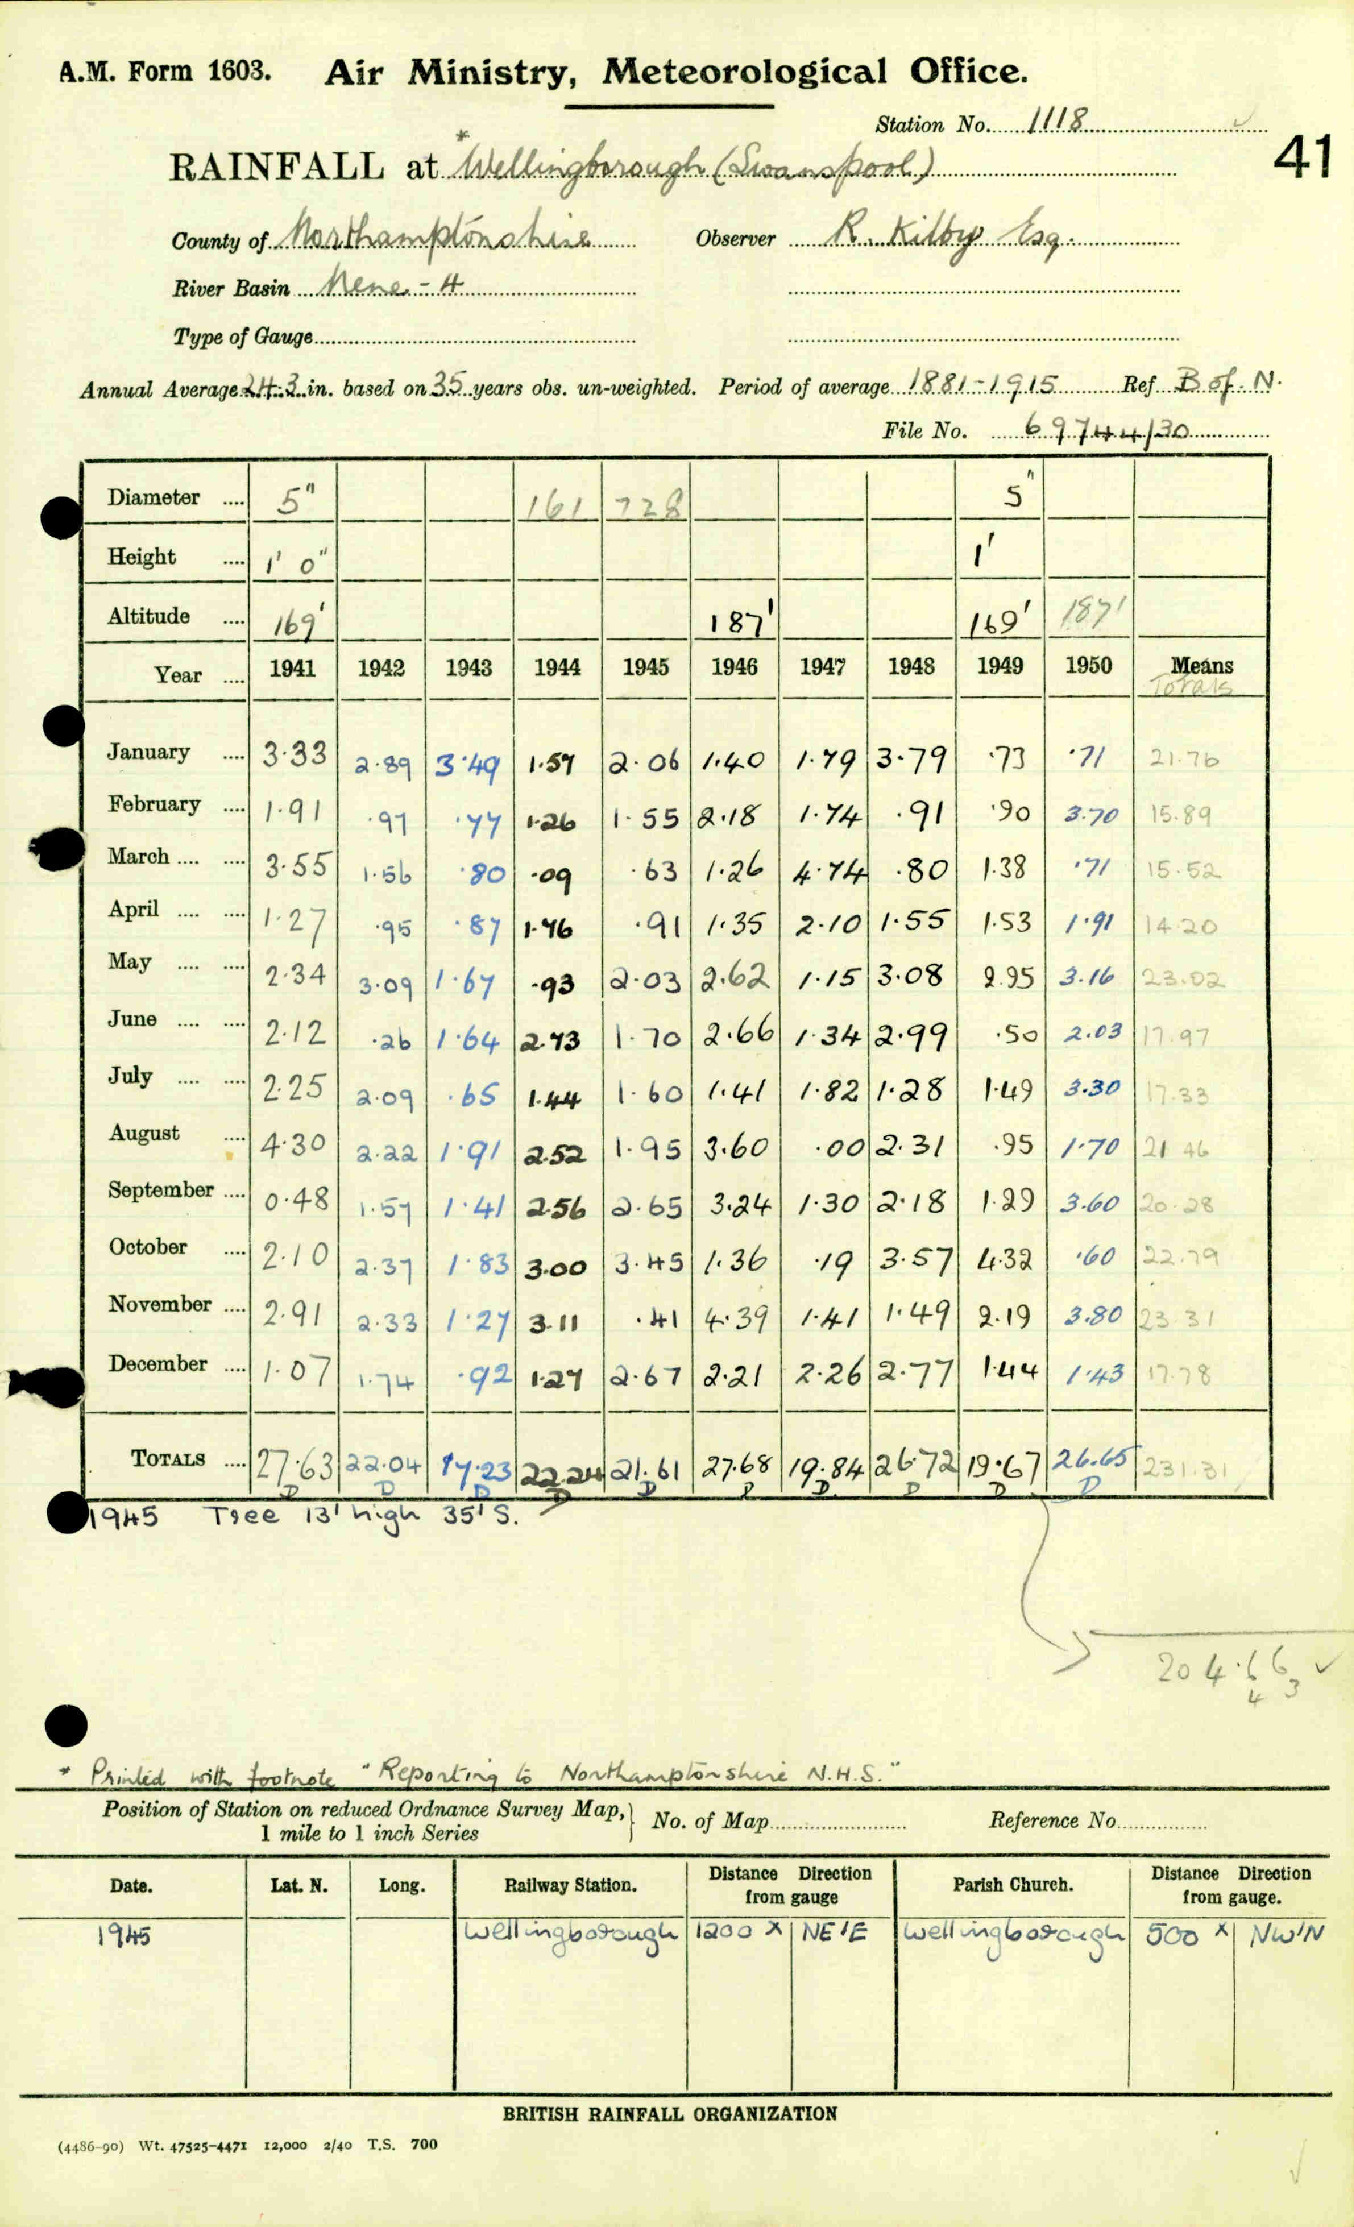 A.M. Form 1603. Air Ministry, Meteorological Office.
Station No. 1118 ✓
41
RAINFALL at *Wellingborough (Swanspool)
County of Northamptonshire Observer R. Kilby Esq.
River Basin Nene - 4
Type of Gauge
Annual Average 24.3 in. based on 35 years obs. un-weighted. Period of average 1881-1915 Ref B of N.
File No. 69744/30
Diameter .... 5" 161 728 5"
Height .... 1' 0" 1'
Altitude .... 169' 187' 169' 187'
Year .... 1941 1942 1943 1944 1945 1946 1947 1948 1949 1950 Means
Totals
January .... 3·33 2·89 3·49 1·57 2·06 1·40 1·79 3·79 ·73 ·71 21·76
February .... 1·91 ·97 ·77 1·26 1·55 2·18 1·74 ·91 ·90 3·70 15·89
March .... .... 3·55 1·56 ·80 ·09 ·63 1·26 4·74 ·80 1·38 ·71 15·52
April .... .... 1·27 ·95 ·87 1·76 ·91 1·35 2·10 1·55 1·53 1·91 14·20
May .... .... 2·34 3·09 1·67 ·93 2·03 2·62 1·15 3·08 2·95 3·16 23·02
June .... .... 2·12 ·26 1·64 2·73 1·70 2·66 1·34 2·99 ·50 2·03 17·97
July .... .... 2·25 2·09 ·65 1·44 1·60 1·41 1·82 1·28 1·49 3·30 17·33
August .... 4·30 2·22 1·91 2·52 1·95 3·60 ·00 2·31 ·95 1·70 21 46
September .... 0·48 1·57 1·41 2·56 2·65 3·24 1·30 2·18 1·29 3·60 20·28
October .... 2·10 2·37 1·83 3·00 3·45 1·36 ·19 3·57 4·32 ·60 22·79
November .... 2·91 2·33 1·27 3·11 ·41 4·39 1·41 1·49 2·19 3·80 23·31
December .... 1·07 1·74 ·92 1·27 2·67 2·21 2·26 2·77 1·44 1·43 17·78
TOTALS .... 27·63 22·04 17·23 22·24 21·61 27·68 19·84 26·72 19·67 26·65 231·31
D D D D D D D D D D
1945 Tree 13' high 35' S.
204·66 ✓
4 3
* Printed with footnote "Reporting to Northamptonshire N.H.S."
Position of Station on reduced Ordnance Survey Map, 1 mile to 1 inch Series } No. of Map Reference No.
Date. Lat. N. Long. Railway Station. Distance Direction from gauge Parish Church. Distance Direction from gauge.
1945 Wellingborough 1200 x NE'E Wellingborough 500 x NW'N
BRITISH RAINFALL ORGANIZATION
(4486-90) Wt. 47525-4471 12,000 2/40 T.S. 700